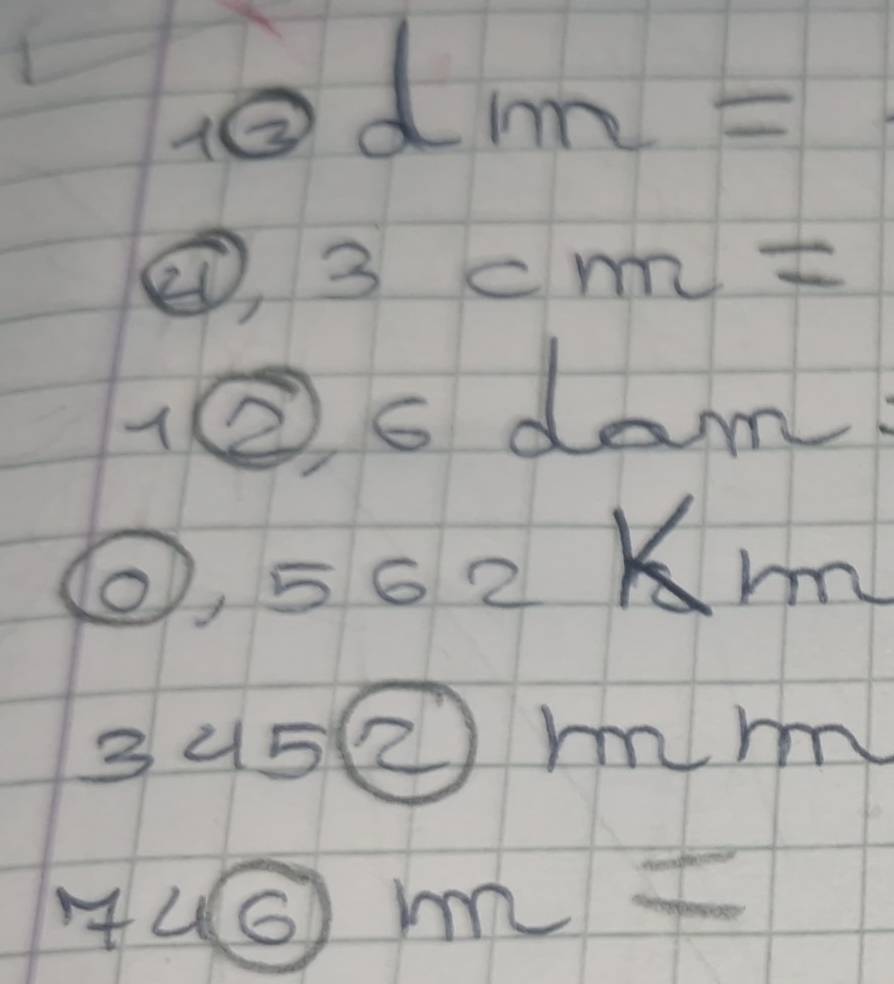 12 dm =
4, 3 cm =
12, 6 dam =
0, 562 Km
3452 mm
746 m =